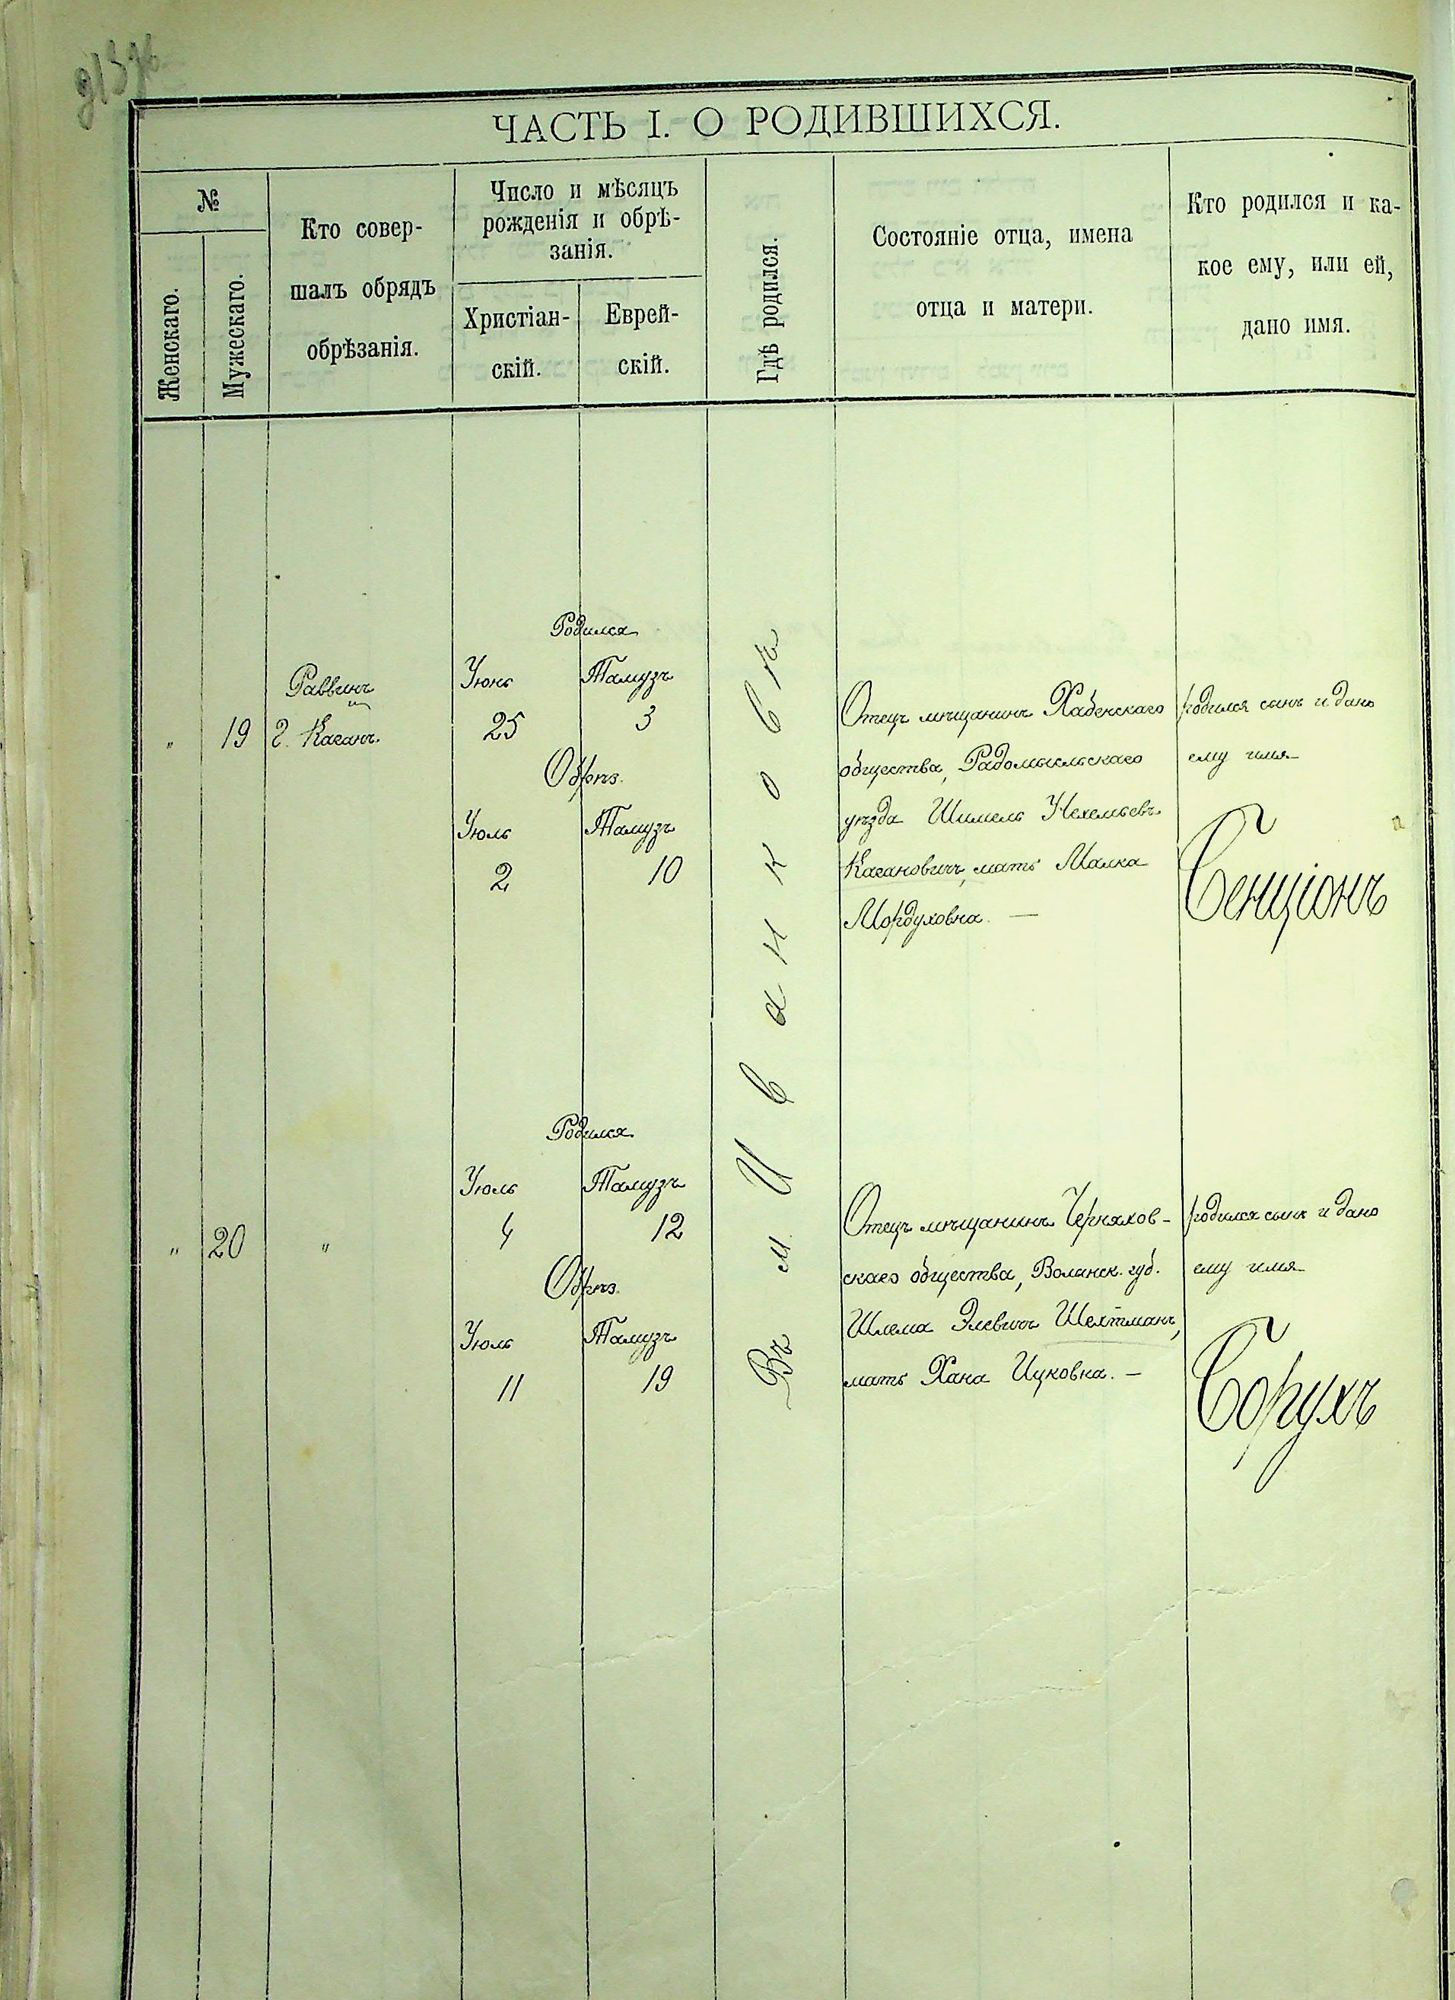 ЧАСТЬ I. О РОДИВШИХСЯ.
№
Женскаго.
Мужескаго.
Кто совер-
шалъ обрядъ
обрѣзанія.
Число и мѣсяцъ
рожденія и обрѣ-
занія.
Христіан-
скій.
Еврей-
скій.
Гдѣ родился.
Состояніе отца, имена
отца и матери.
Кто родился и ка-
кое ему, или ей,
дано имя.
Въ м. Иванковѣ
"
19
Раввинъ
Г. Каганъ.
Родился
Іюнь
Тамузъ
25
3
Обрѣз.
Іюль
Тамузъ
2
10
Отецъ мѣщанинъ Хабенскаго
общества, Радомысльскаго
уѣзда Шимель Нехемьевъ
Кагановичъ, мать Малка
Мордуховна. —
родился сынъ и дано
ему имя
Бенціонъ
"
20
"
Родился
Іюль
Тамузъ
4
12
Обрѣз.
Іюль
Тамузъ
11
19
Отецъ мѣщанинъ Черняхов-
скаго общества, Волынск. губ.
Шлема Элевичъ Шехтманъ,
мать Хана Ицковна. —
родился сынъ и дано
ему имя
Борухъ